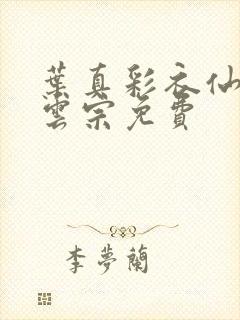 葉真彩衣仙
雲宗免費
李夢蘭